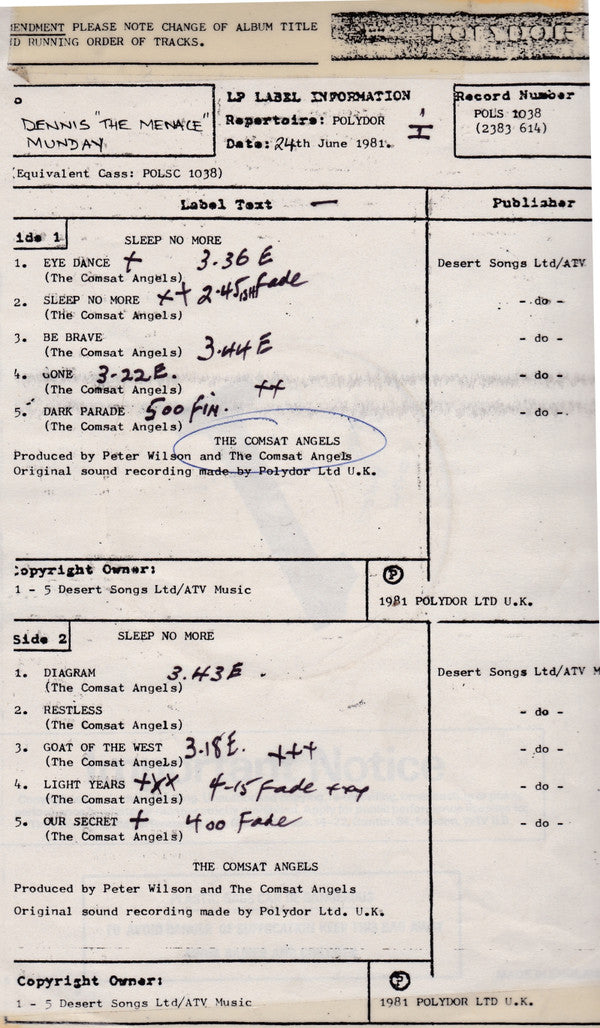 ENDMENT PLEASE NOTE CHANGE OF ALBUM TITLE
D RUNNING ORDER OF TRACKS.
POLYDOR
o
DENNIS "THE MENACE"
MUNDAY
LP LABEL INFORMATION
Repertoire: POLYDOR
Date: 24th June 1981.
Record Number
POLS 1038
(2383 614)
(Equivalent Cass: POLSC 1038)
Label Text
Publisher
ide 1 SLEEP NO MORE
1. EYE DANCE + 3.36 E Desert Songs Ltd/ATV
(The Comsat Angels)
2. SLEEP NO MORE ++ 2.45 fade - do -
(The Comsat Angels)
3. BE BRAVE - do -
(The Comsat Angels) 3.44 E
4. GONE 3-22 E. - do -
(The Comsat Angels) ++
5. DARK PARADE 500 fin. - do -
(The Comsat Angels)
THE COMSAT ANGELS
Produced by Peter Wilson and The Comsat Angels
Original sound recording made by Polydor Ltd U.K.
Copyright Owner:
1 - 5 Desert Songs Ltd/ATV Music
Ⓟ
1981 POLYDOR LTD U.K.
Side 2 SLEEP NO MORE
1. DIAGRAM 3.43 E . Desert Songs Ltd/ATV M
(The Comsat Angels)
2. RESTLESS - do -
(The Comsat Angels)
3. GOAT OF THE WEST 3.18 E. +++ - do -
(The Comsat Angels)
4. LIGHT YEARS +xx 4-15 Fade - do -
(The Comsat Angels)
5. OUR SECRET + 400 Fade - do -
(The Comsat Angels)
THE COMSAT ANGELS
Produced by Peter Wilson and The Comsat Angels
Original sound recording made by Polydor Ltd. U.K.
Copyright Owner:
1 - 5 Desert Songs Ltd/ATV Music
Ⓟ
1981 POLYDOR LTD U.K.